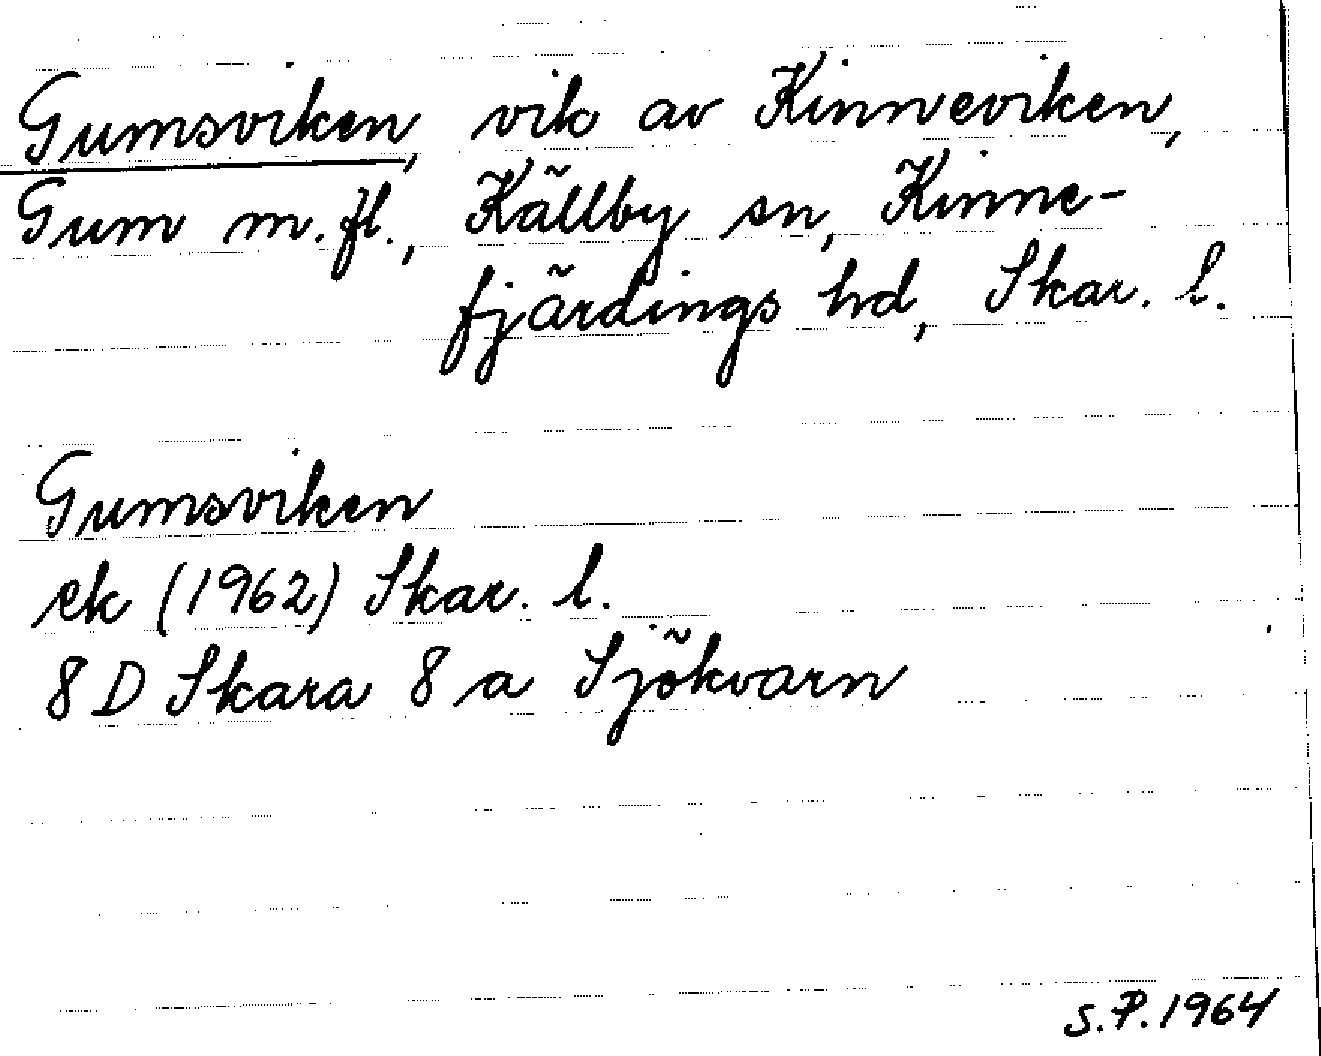 Gumsviken, vik av Kinneviken,
Gum m.fl., Källby sn, Kinne-
fjärdings hd, Skar. l.
Gumsviken
ek (1962) Skar. l.
8 D Skara 8 a Sjökvarn
S.P. 1964